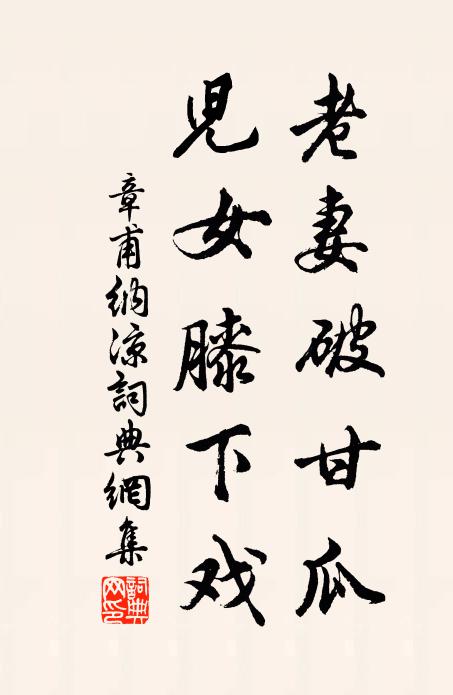 老妻破甘瓜
児女膝下戏
章甫纳凉詞典網集
詞典网印